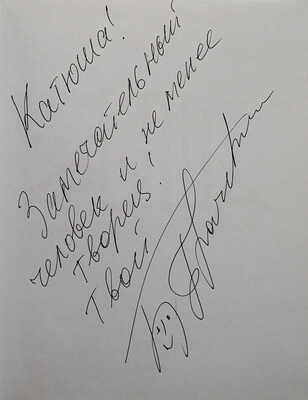 Катюша!
Замечательный
человек и не менее
творец!
Твой